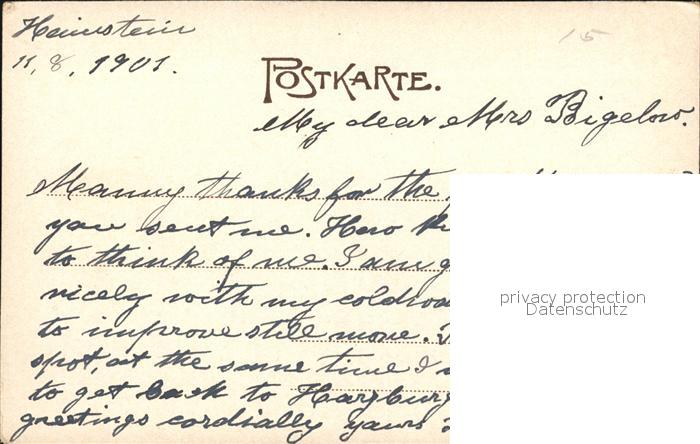 Hainstein
11, 8, 1901.
15
POSTKARTE.
My dear Mrs Bigelow.
Manny thanks for the
you sent me. How
to think of me. I am
nicely with my
to improve still more.
spot, at the same time I
to get back to Harzburg
greetings cordially yours
privacy protection
Datenschutz